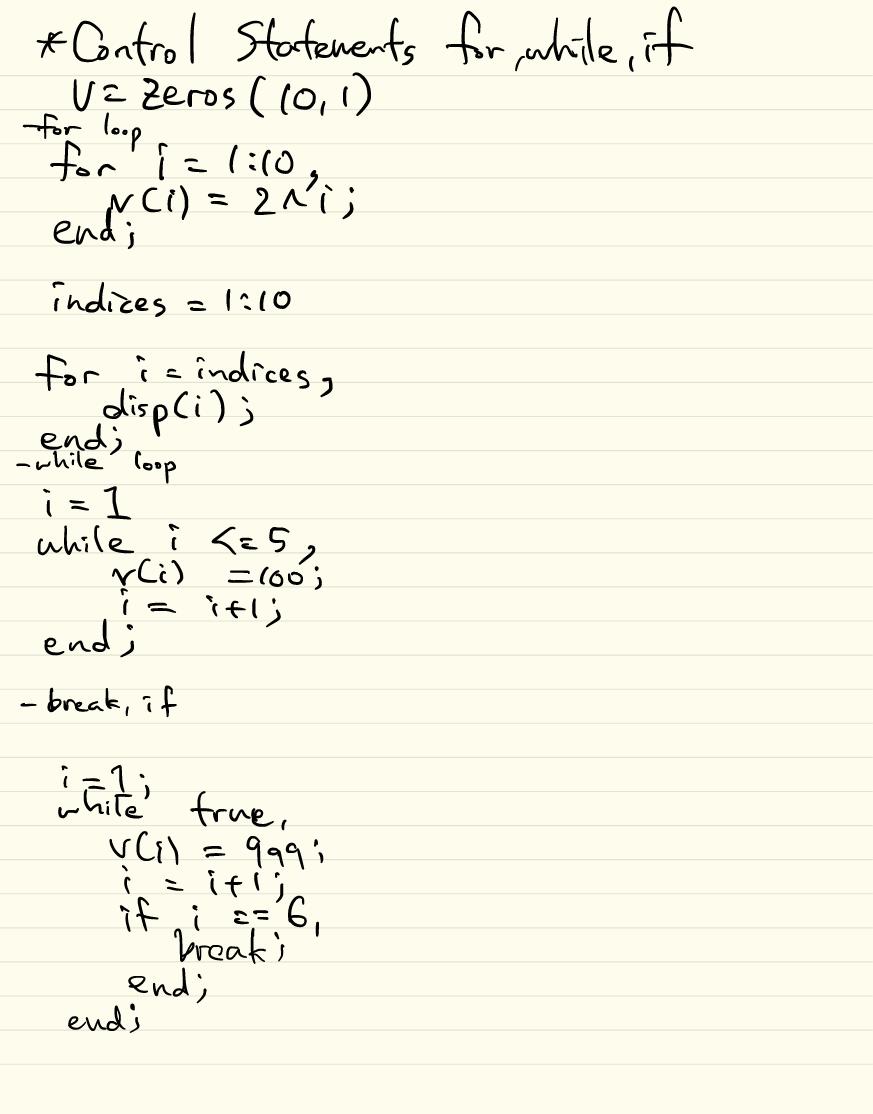 *Control Statements for, while, if
V = zeros(10,1)
-for loop
for i = 1:10,
v(i) = 2^i;
end;
indices = 1:10
for i = indices,
disp(i);
end;
-while loop
i = 1
while i <= 5,
v(i) = 100;
i = i+1;
end;
- break, if
i = 1;
while true,
v(i) = 999;
i = i+1;
if i == 6,
break;
end;
end;